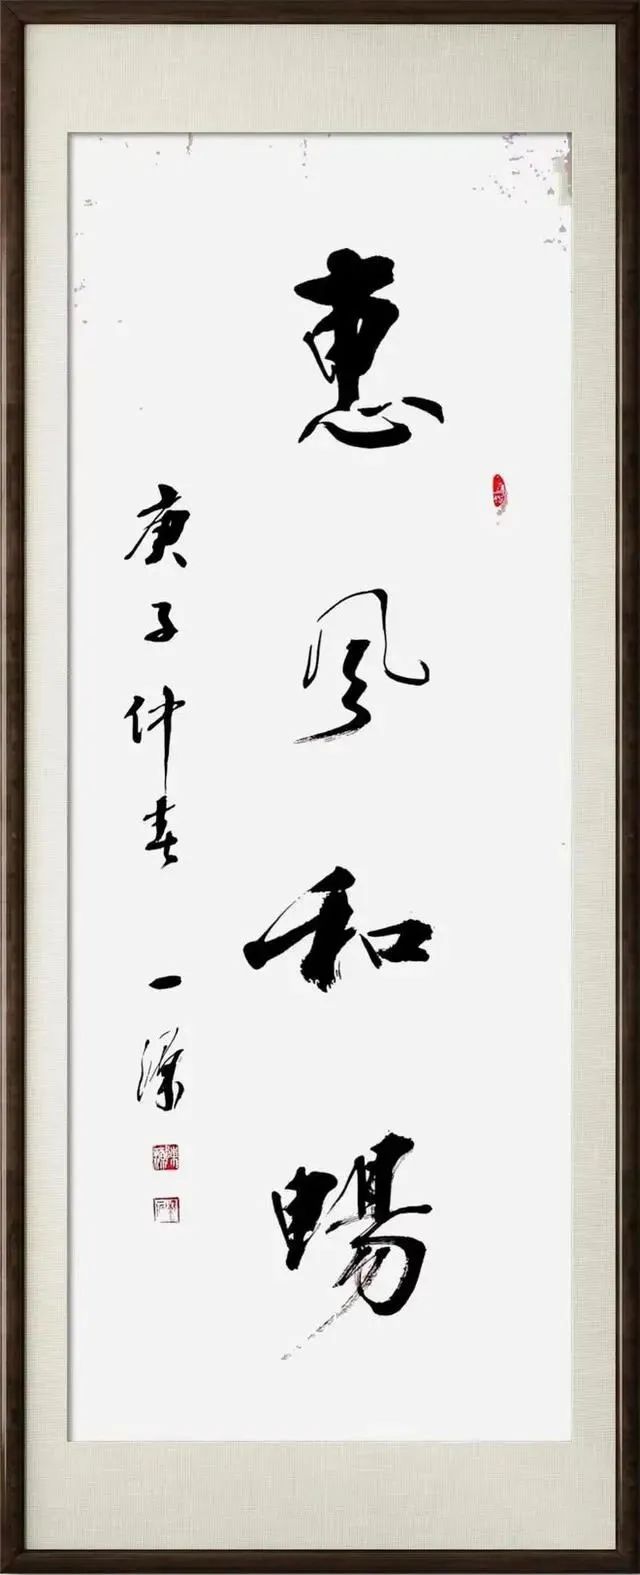 惠风和暢
庚子仲春 一源